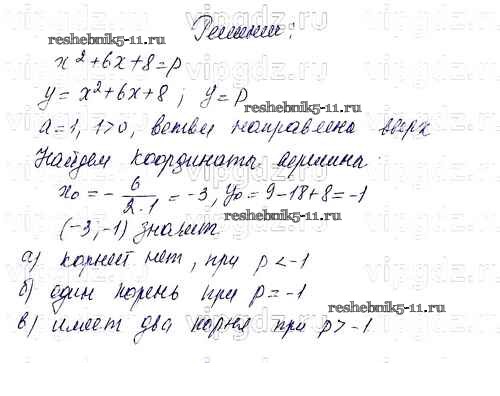 Решение:
reshebnik5-11.ru
x² + 6x + 8 = p
y = x² + 6x + 8 ; y = p
reshebnik5-11.ru
a = 1, 1 > 0, ветви направлена вверх
Найдем координата вершина
x₀ = - 6/2·1 = -3, y₀ = 9 - 18 + 8 = -1
reshebnik5-11.ru
(-3; -1) значит
а) корней нет, при p < -1
б) один корень при p = -1
reshebnik5-11.ru
в) имеет два корня при p > -1
vipgdz.ru